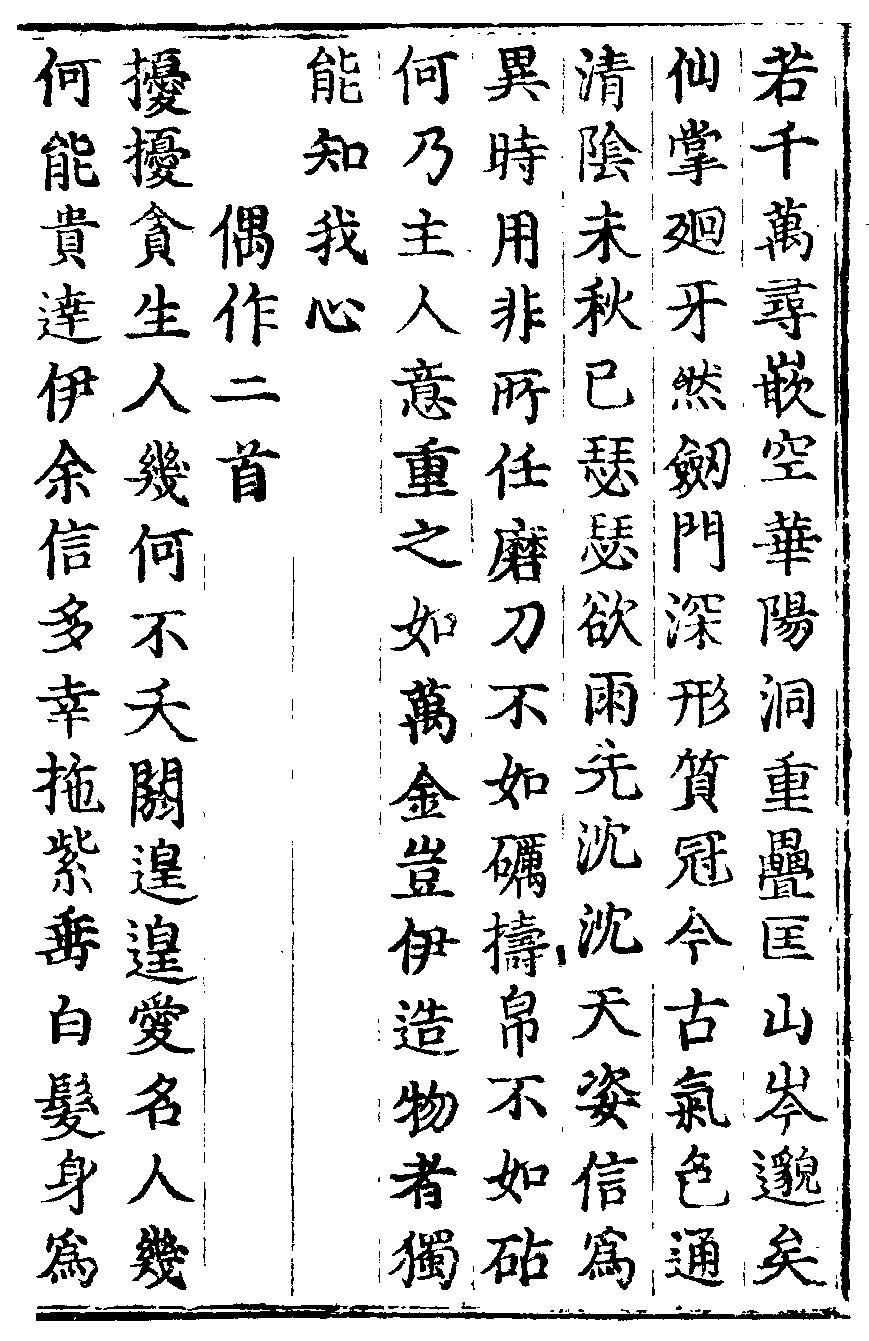 若千萬尋嵌空華陽洞重疊匡山岑邈矣
仙掌廻牙然劒門深形質冠今古氣色通
清陰未秋已瑟瑟欲雨先沈沈天姿信爲
異時用非所任磨刀不如礪擣帛不如砧
何乃主人意重之如萬金豈伊造物者獨
能知我心
偶作二首
擾擾貪生人幾何不夭閼遑遑愛名人幾
何能貴達伊余信多幸拖紫垂白髮身爲